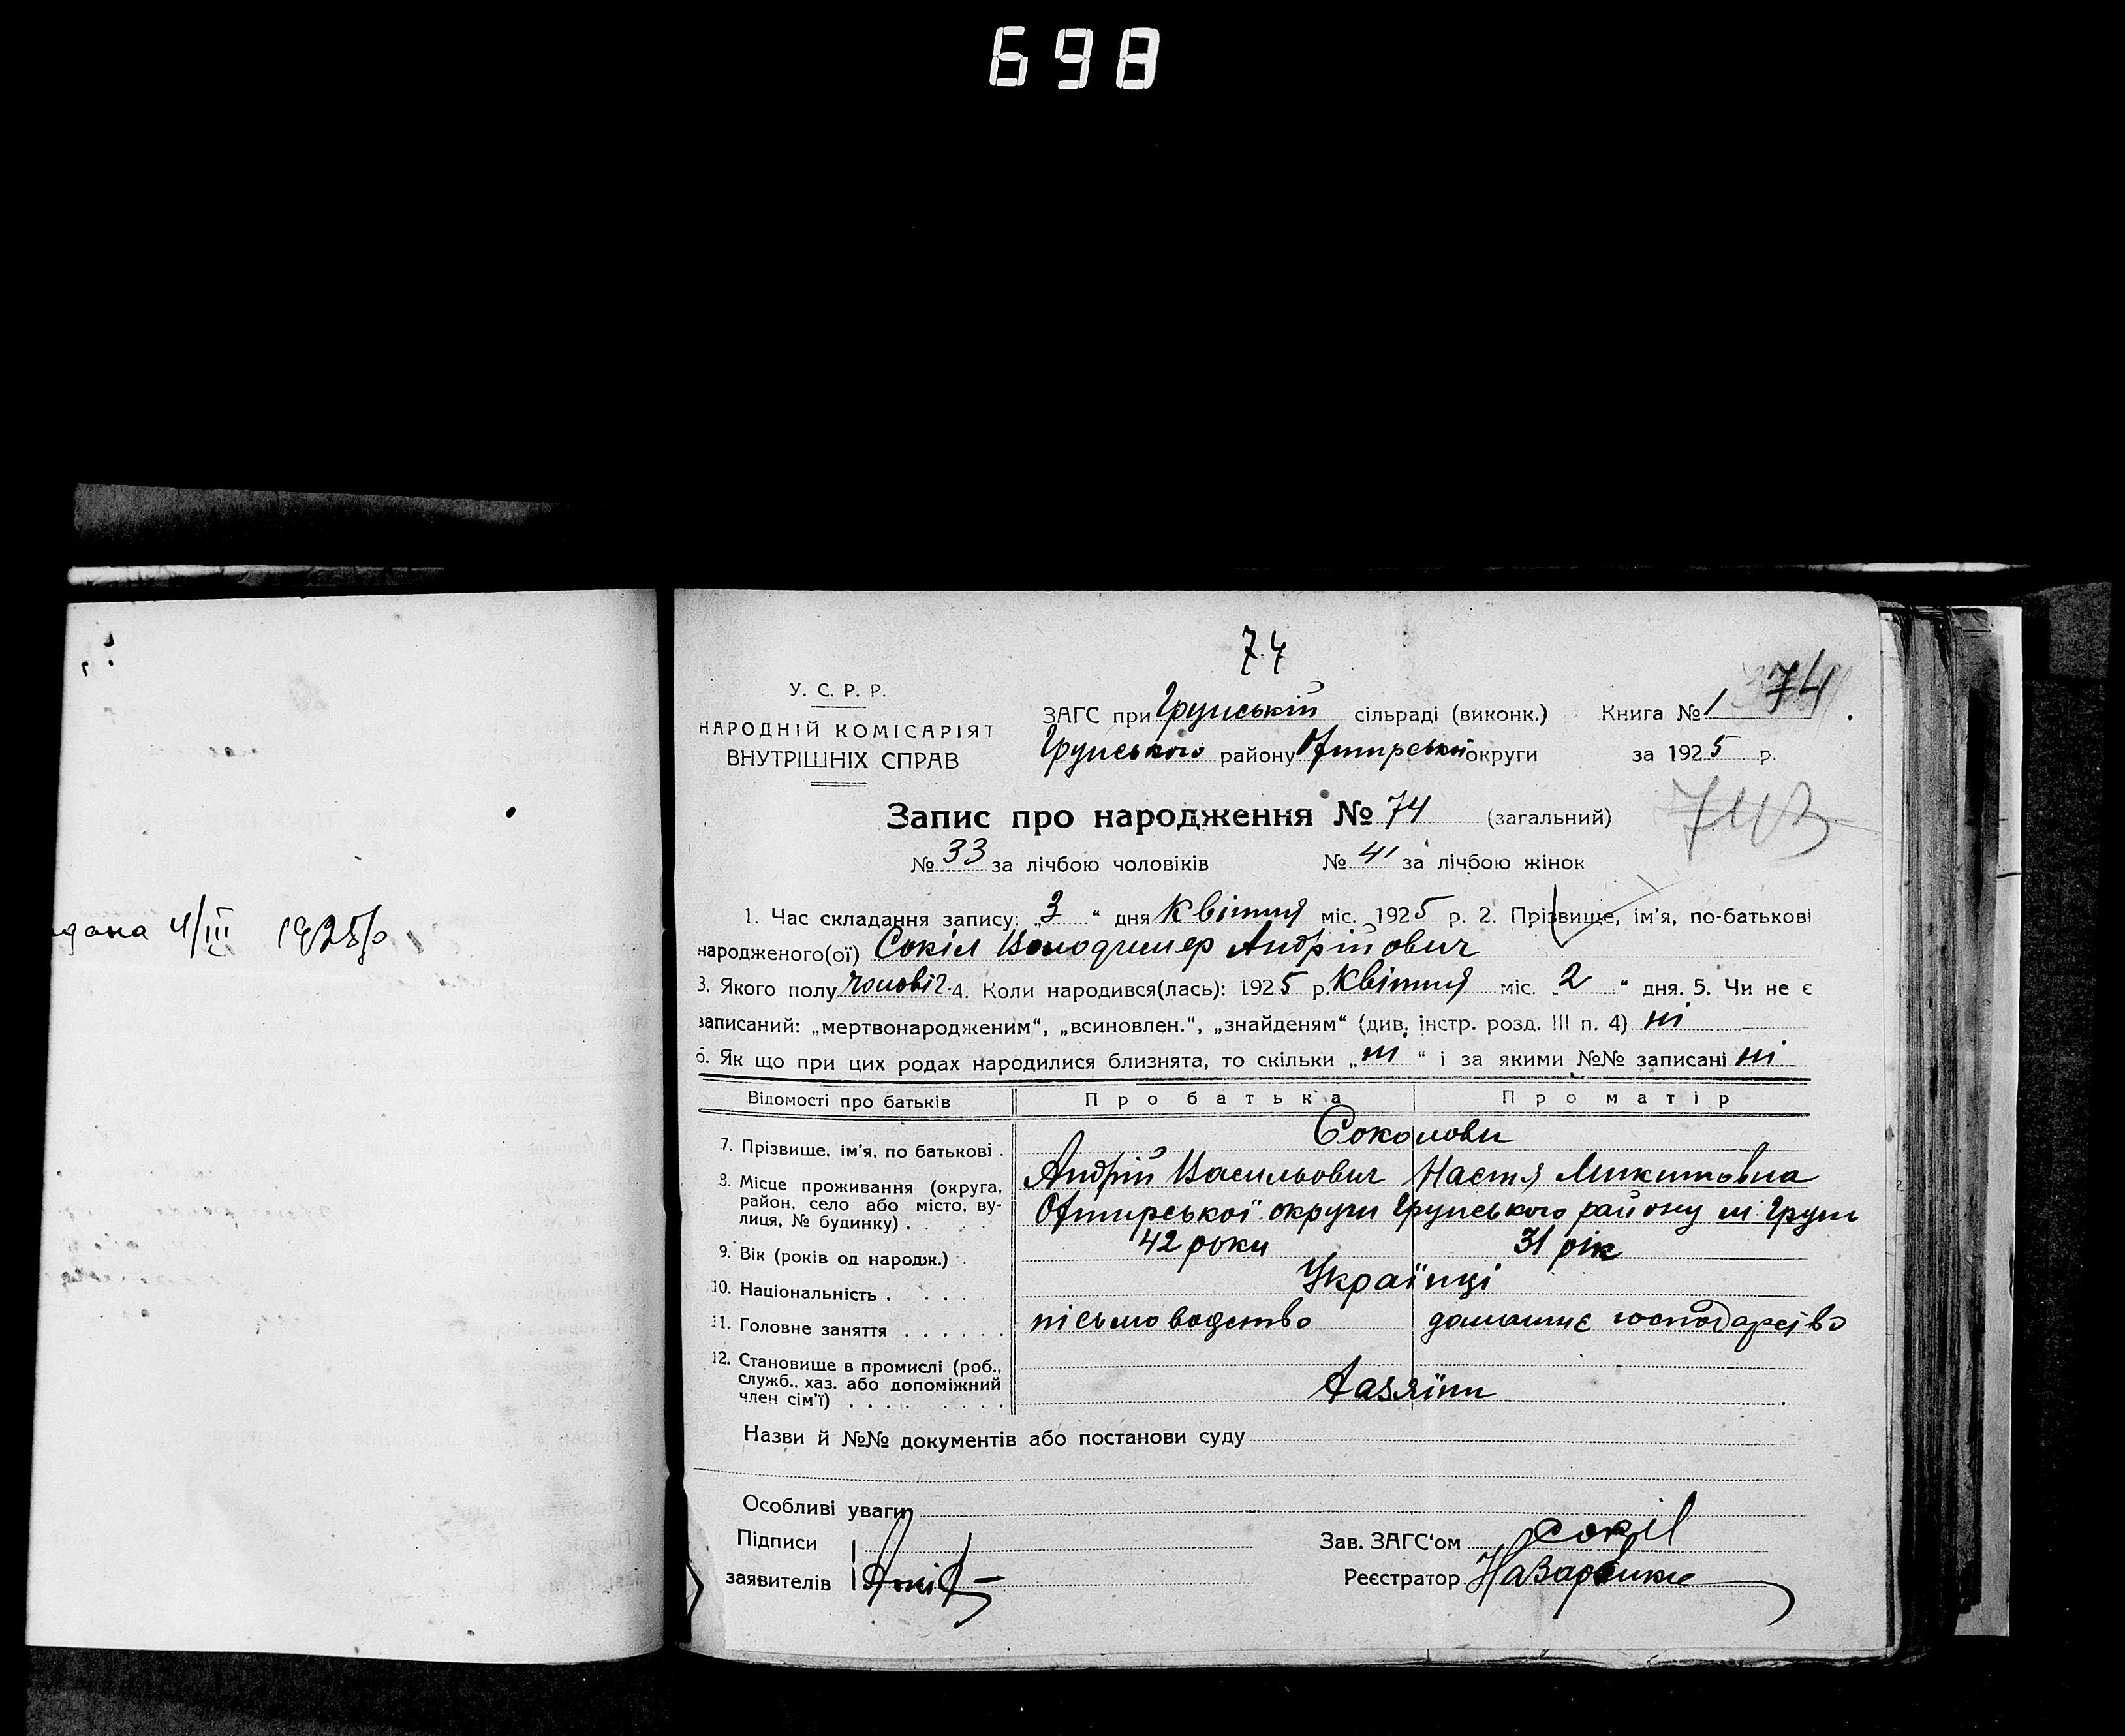 698
дана 4/III 1925 р
74
74
У. С. Р. Р.
НАРОДНІЙ КОМІСАРІЯТ
ВНУТРІШНІХ СПРАВ
ЗАГС при Грунській сільраді (виконк.) Книга № 1
Грунського району Охтирської округи за 1925 р.
Запис про народження № 74 (загальний)
743
№ 33 за лічбою чоловіків № 41 за лічбою жінок
1. Час складання запису: „3“ дня Квітня міс. 1925 р. 2. Прізвище, ім'я, по-батькові
народженого(ої) Сокіл Володимер Андрійович
3. Якого полу чоловіч. 4. Коли народився(лась): 1925 р. Квітня міс. „2“ дня. 5. Чи не є
записаний: „мертвонародженим“, „всиновлен.“, „знайденям“ (див. інстр. розд. III п. 4) ні
6. Як що при цих родах народилися близнята, то скільки „ні“ і за якими №№ записані ні
Відомості про батьків Про батька Про матір
Соколови
7. Прізвище, ім'я, по батькові . Андрій Васильович Настя Микитовна
8. Місце проживання (округа,
район, село або місто, ву-
лиця, № будинку) . Охтирської округи Грунського району м Грунь
9. Вік (років од народж.) . 42 роки 31 рік
10. Національність . Українці
11. Головне заняття . . . . . . письмоводство домашнє господарство
12. Становище в промислі (роб.,
служб., хаз. або допоміжний
член сім'ї) . . . . . . . . Хазяїни
Назви й №№ документів або постанови суду
Особливі уваги
Підписи Зав. ЗАГС'ом Сокіл
заявителів Реєстратор